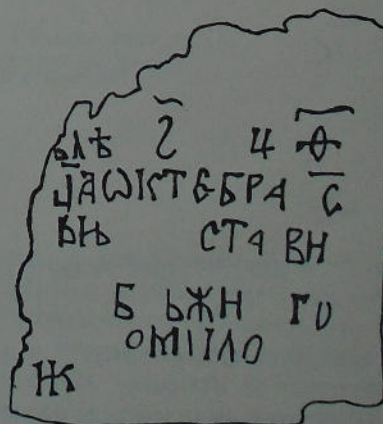 ЬЛѢ Г Ч Ѳ
ЦАѠКТЕБРА С
ВЊ СТА ВН
Б ЬЖН ГО
ОМІІЛО
Ж